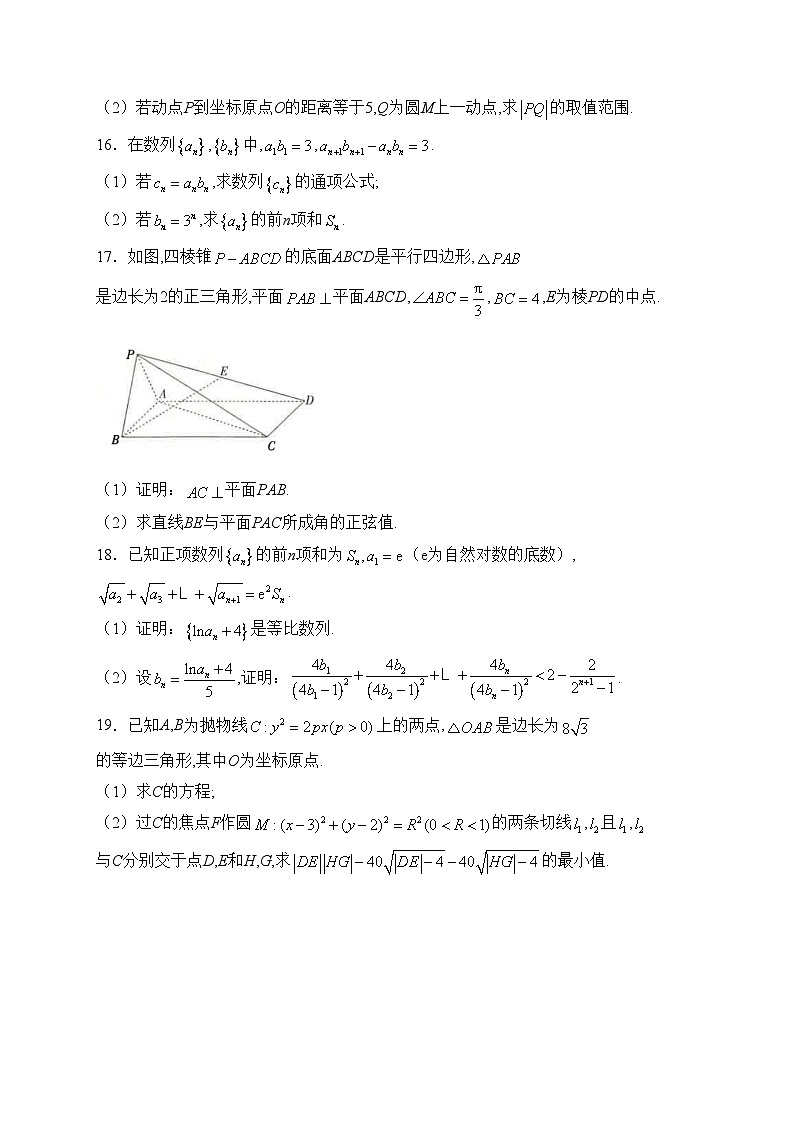 （2）若动点P到坐标原点O的距离等于5,Q为圆M上一动点,求|PQ|的取值范围.
16．在数列{aₙ},{bₙ}中,a₁b₁=3,aₙ₊₁bₙ₊₁−aₙbₙ=3.
（1）若cₙ=aₙbₙ,求数列{cₙ}的通项公式;
（2）若bₙ=3ⁿ,求{aₙ}的前n项和Sₙ.
17．如图,四棱锥P−ABCD的底面ABCD是平行四边形,△PAB
是边长为2的正三角形,平面PAB⊥平面ABCD,∠ABC=π/3,BC=4,E为棱PD的中点.
P
E
A
D
B
C
（1）证明：AC⊥平面PAB.
（2）求直线BE与平面PAC所成角的正弦值.
18．已知正项数列{aₙ}的前n项和为Sₙ,a₁=e（e为自然对数的底数）,
√a₂+√a₃+L+√aₙ₊₁=e²Sₙ.
（1）证明：{lnaₙ+4}是等比数列.
（2）设bₙ=(lnaₙ+4)/5,证明：4b₁/(4b₁−1)²+4b₂/(4b₂−1)²+L+4bₙ/(4bₙ−1)²<2−2/(2ⁿ⁺¹−1).
19．已知A,B为抛物线C:y²=2px(p>0)上的两点,△OAB是边长为8√3
的等边三角形,其中O为坐标原点.
（1）求C的方程;
（2）过C的焦点F作圆M:(x−3)²+(y−2)²=R²(0<R<1)的两条切线l₁,l₂且l₁,l₂
与C分别交于点D,E和H,G,求|DE||HG|−40√(|DE|−4)−40√(|HG|−4)的最小值.